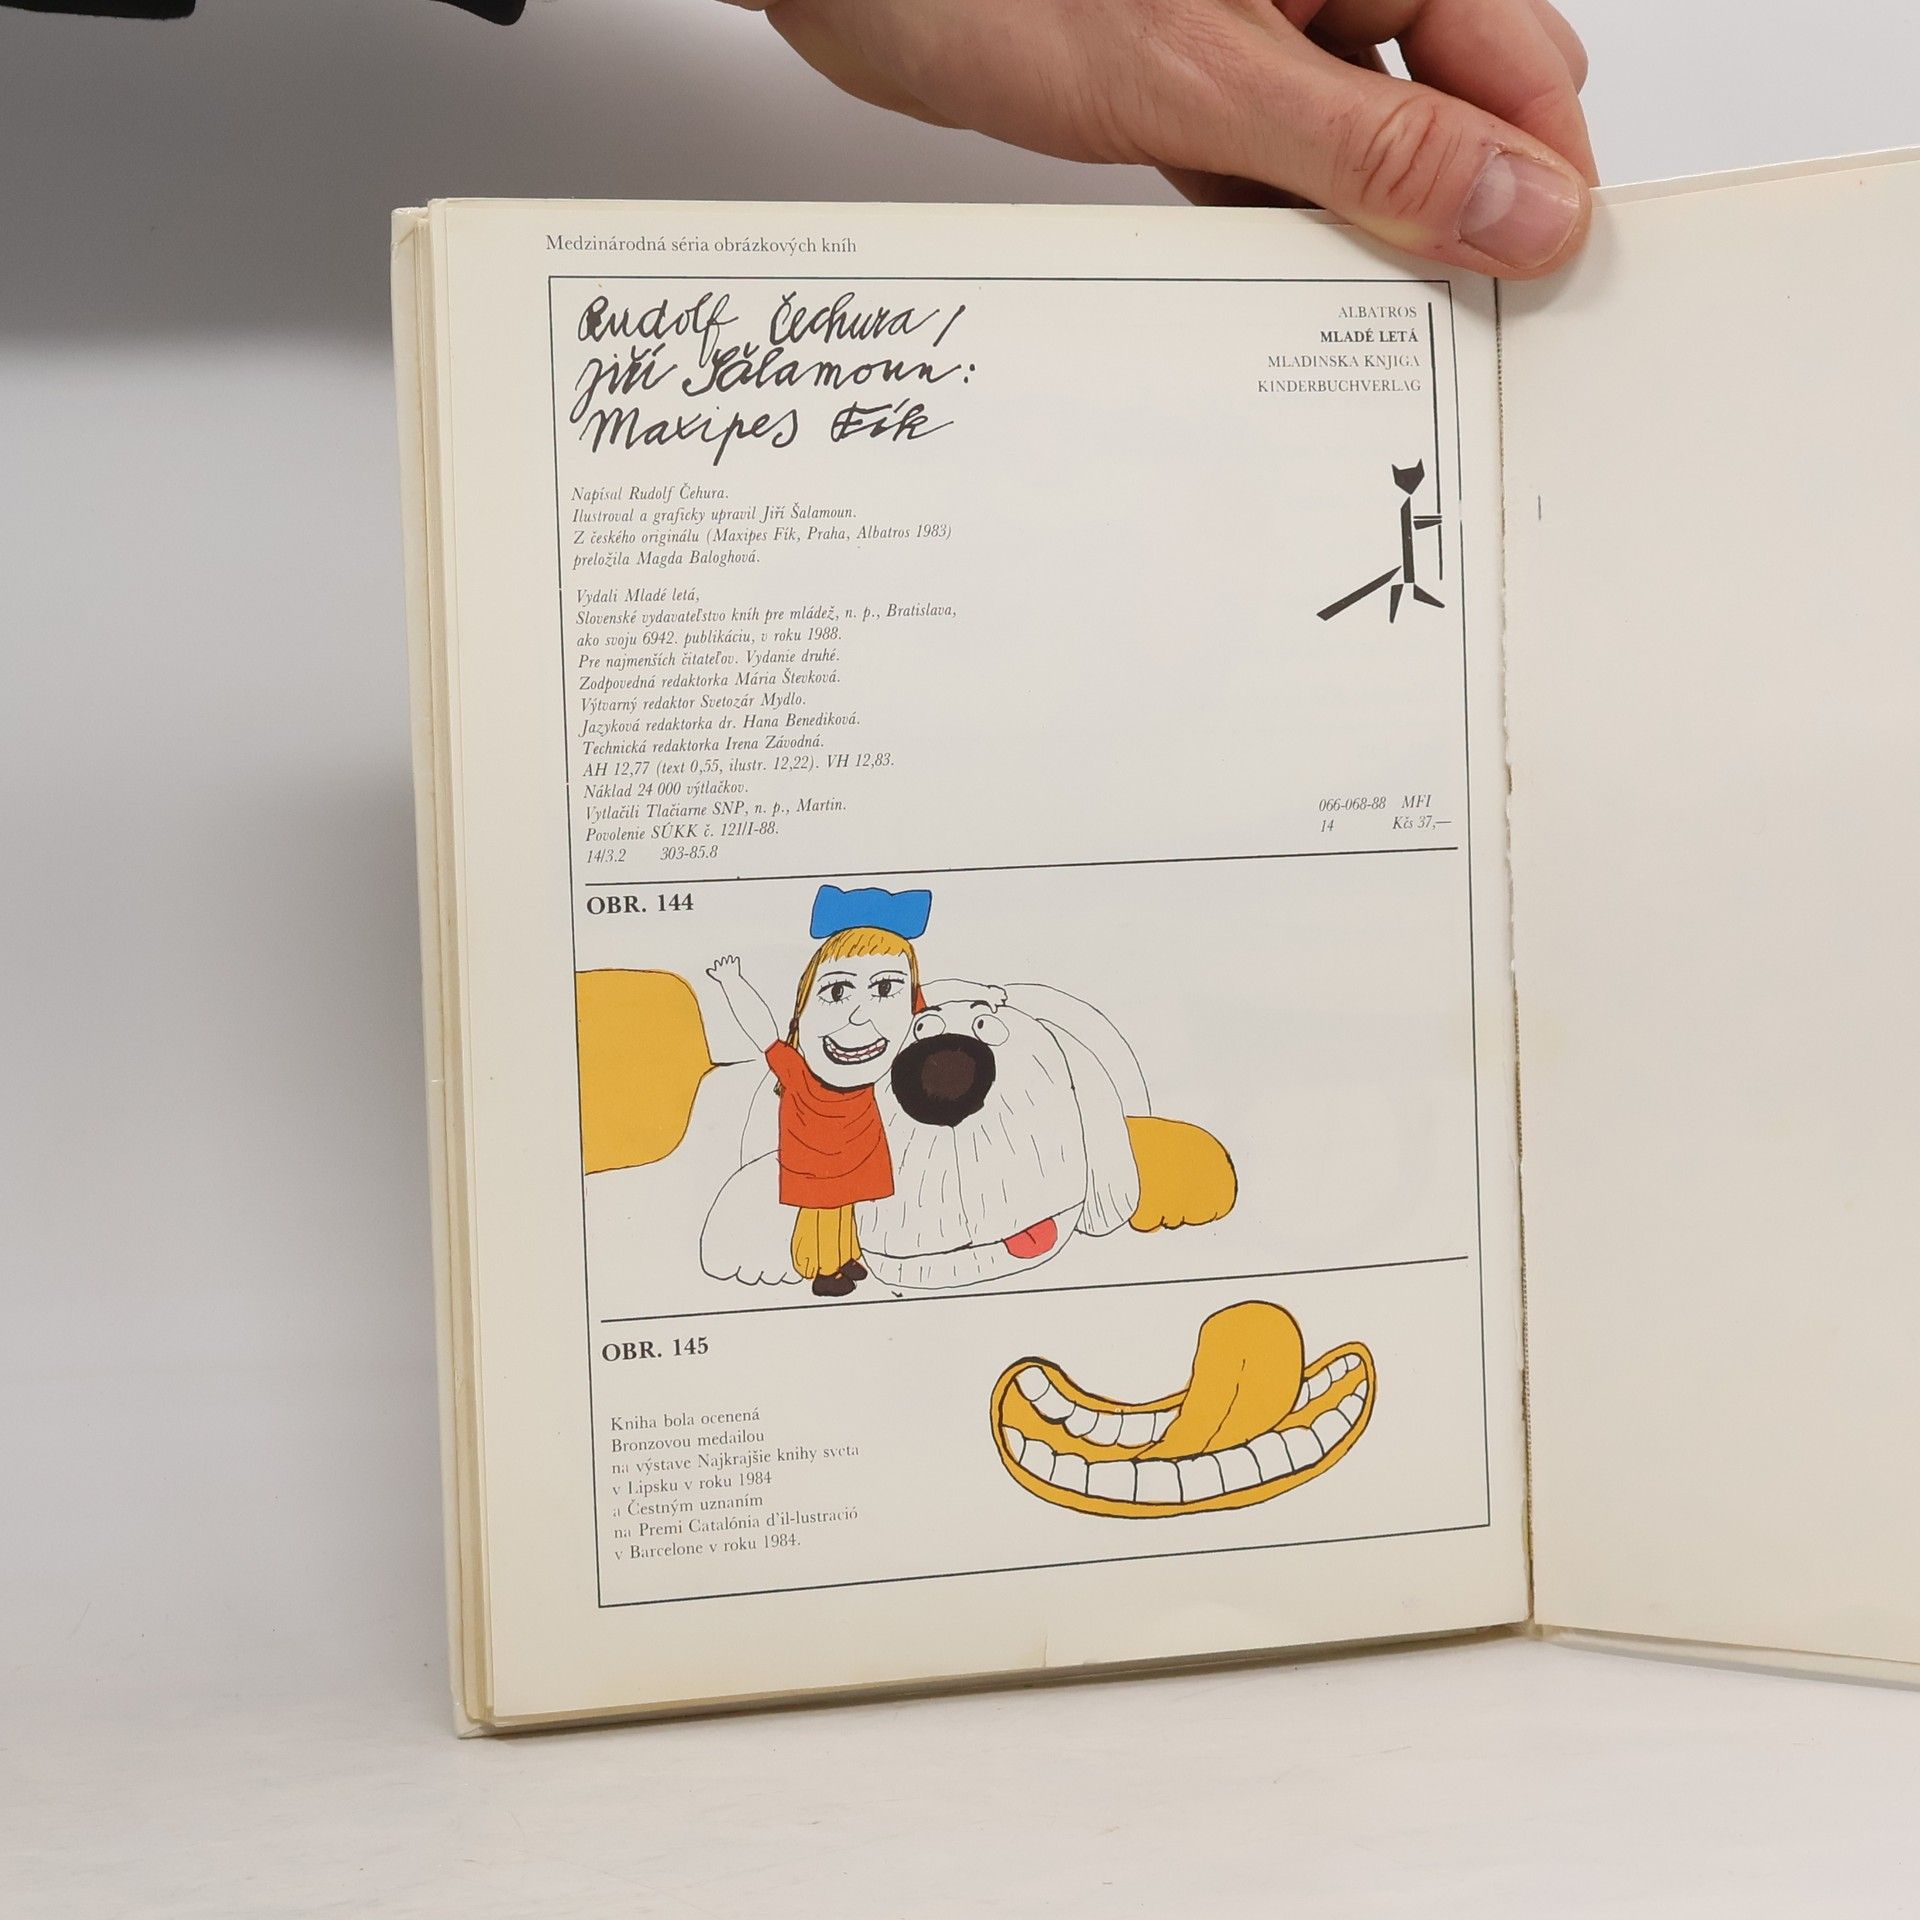 Medzinárodná séria obrázkových kníh
Rudolf Čechura /
Jiří Šalamoun:
Maxipes Fík
ALBATROS
MLADÉ LETÁ
MLADINSKA KNJIGA
KINDERBUCHVERLAG
Napísal Rudolf Čehura.
Ilustroval a graficky upravil Jiří Šalamoun.
Z českého originálu (Maxipes Fík, Praha, Albatros 1983)
preložila Magda Baloghová.
Vydali Mladé letá,
Slovenské vydavateľstvo kníh pre mládež, n. p., Bratislava,
ako svoju 6942. publikáciu, v roku 1988.
Pre najmenších čitateľov. Vydanie druhé.
Zodpovedná redaktorka Mária Števková.
Výtvarný redaktor Svetozár Mydlo.
Jazyková redaktorka dr. Hana Benediková.
Technická redaktorka Irena Závodná.
AH 12,77 (text 0,55, ilustr. 12,22). VH 12,83.
Náklad 24 000 výtlačkov.
Vytlačili Tlačiarne SNP, n. p., Martin.
Povolenie SÚKK č. 121/I-88.
14/3.2 303-85.8
066-068-88 MFI
14 Kčs 37,—
OBR. 144
OBR. 145
Kniha bola ocenená
Bronzovou medailou
na výstave Najkrajšie knihy sveta
v Lipsku v roku 1984
a Čestným uznaním
na Premi Catalónia d'il-lustració
v Barcelone v roku 1984.